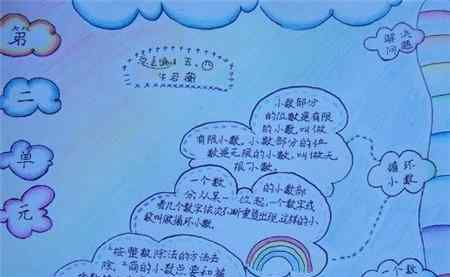 第
二
单
元
解决
问题
小数部分
的位数是有限
的小数,叫做
有限小数。小数部分的位
数是无限的小数,叫做无
限小数。
循环
小数
一个数的小数部
分,从某一位起,一个数字或
者几个数字依次不断重复出现,这样的小
数叫做循环小数。
按整数除法的方法去
除,商的小数点要和